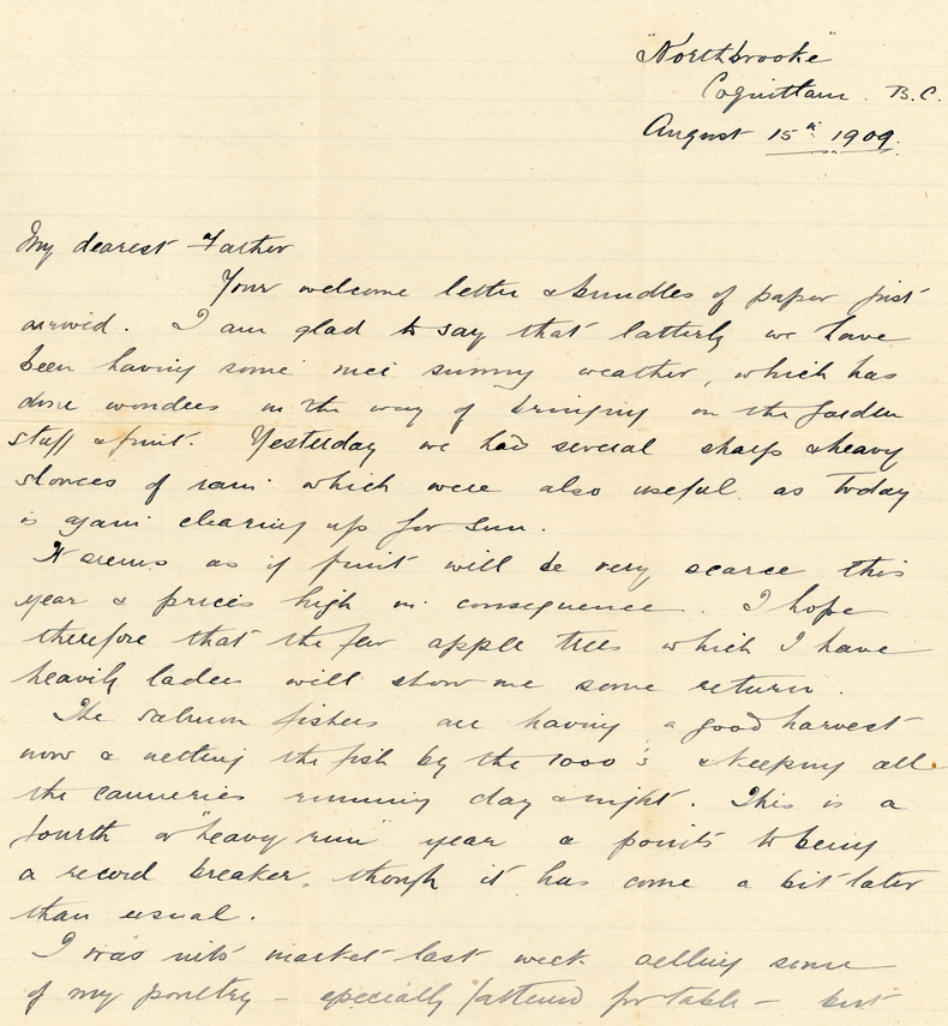 "Northbrooke"
Coquitlam. B.C.
August 15th 1909.
My dearest Father
Your welcome letter & bundles of paper just
arrived. I am glad to say that latterly we have
been having some nice sunny weather, which has
done wonders in the way of bringing on the garden
stuff & fruit. Yesterday we had several sharp & heavy
showers of rain which were also useful. as today
is again clearing up for sun.
It seems as if fruit will be very scarce this
year & prices high in consequence. I hope
therefore that the few apple trees which I have
heavily laden will show me some return.
The salmon fishers are having a good harvest
now & netting the fish by the 1000's & keeping all
the canneries running day & night. This is a
fourth or "heavy run" year & points to being
a record breaker, though it has come a bit later
than usual.
I was into market last week selling some
of my poultry – especially fattened for table – but